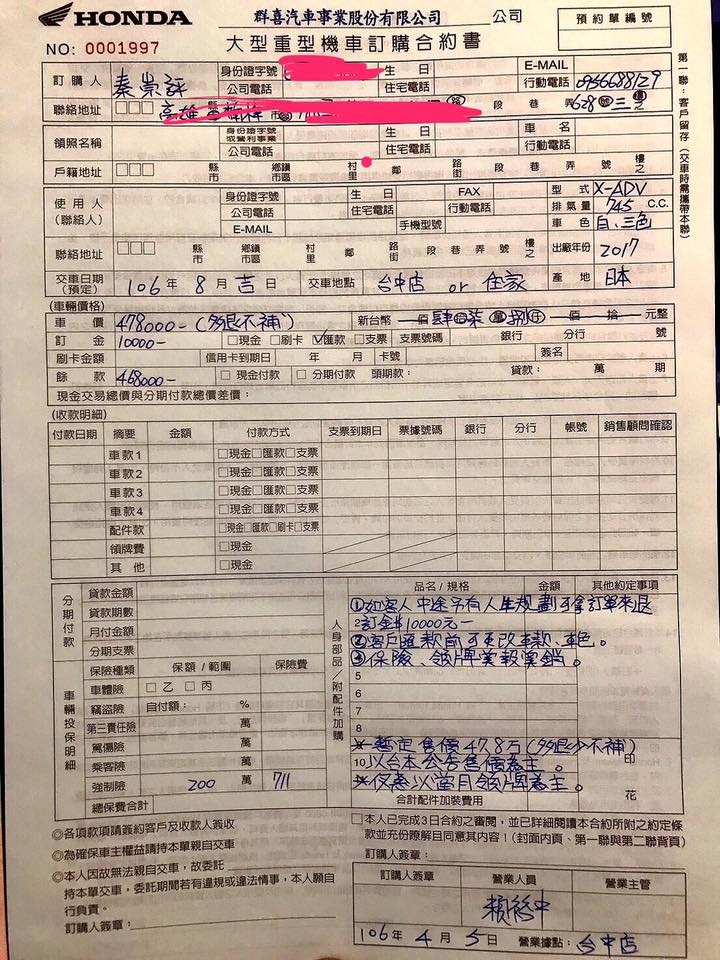 HONDA 群喜汽車事業股份有限公司 公司 預約單編號
NO: 0001997 大型重型機車訂購合約書
第一聯：客戶留存（交車時需攜帶本聯）
訂購人 秦崇評 身份證字號 生 日 E-MAIL
公司電話 住宅電話 行動電話 0956688129
聯絡地址 高雄 縣市 路 段 巷 弄 628號 三樓之
領照名稱 身份證字號或營利事業 生 日 車 名
公司電話 住宅電話 行動電話
戶籍地址 縣市 鄉鎮市區 村里 鄰 路街 段 巷 弄 號 樓之
使用人（聯絡人） 身份證字號 生 日 FAX 型 式 X-ADV
公司電話 住宅電話 行動電話 排氣量 745 C.C.
E-MAIL 手機型號 車 色 白、三色
聯絡地址 縣市 鄉鎮市區 村里 鄰 路街 段 巷 弄 號 樓之 出廠年份 2017
交車日期（預定） 106年 8月 吉日 交車地點 台中店 or 住家 產 地 日本
(車輛價格)
車 價 478000-(多退不補) 新台幣 佰 肆拾柒萬捌仟 佰 拾 元整
訂 金 10000- □現金 □刷卡 ☑匯款 □支票 支票號碼 銀行 分行 號
刷卡金額 信用卡到期日 年 月 卡號 簽名
餘 款 468000- □現金付款 □分期付款 頭期款： 貸款： 萬 期
現金交易總價與分期付款總價差價：
(收款明細)
付款日期 摘要 金額 付款方式 支票到期日 票據號碼 銀行 分行 帳號 銷售顧問確認
車款1 □現金□匯款□支票
車款2 □現金□匯款□支票
車款3 □現金□匯款□支票
車款4 □現金□匯款□支票
配件款 □現金□匯款□刷卡□支票
領牌費 □現金
其 他 □現金
分期付款 貸款金額 人身部品/附配件加購 品名/規格 金額 其他約定事項
貸款期數 ①如客人中途另有人生規劃可拿訂單來退
月付金額 2 訂金$10000元-
分期支票 ②客戶匯款前可更改車款、車色。
車輛投保明細 保險種類 保額/範圍 保險費 ③保險、領牌實報實銷。
車體險 □乙 □丙 5
竊盜險 自付額： % 6
第三責任險 萬 7
駕傷險 萬 8
乘客險 萬 ※暫定售價47.8万(多退少不補)
強制險 200 萬 711 10 以台本公告售價為主。 印
※以當月領牌為主。 花
總保費合計 合計配件加裝費用
◎各項款項請簽約客戶及收款人簽收
◎為確保車主權益請持本單親自交車
◎本人因故無法親自交車，故委託
持本單交車，委託期間若有違規或違法情事，本人願自
行負責。
訂購人簽章：
□本人已完成3日合約之審閱，並已詳細閱讀本合約所附之約定條
款並充份瞭解且同意其內容！(封面內頁、第一聯與第二聯背頁)
訂購人簽章：
訂購人簽章 營業人員 營業主管
106年 4月 5日 營業據點：台中店